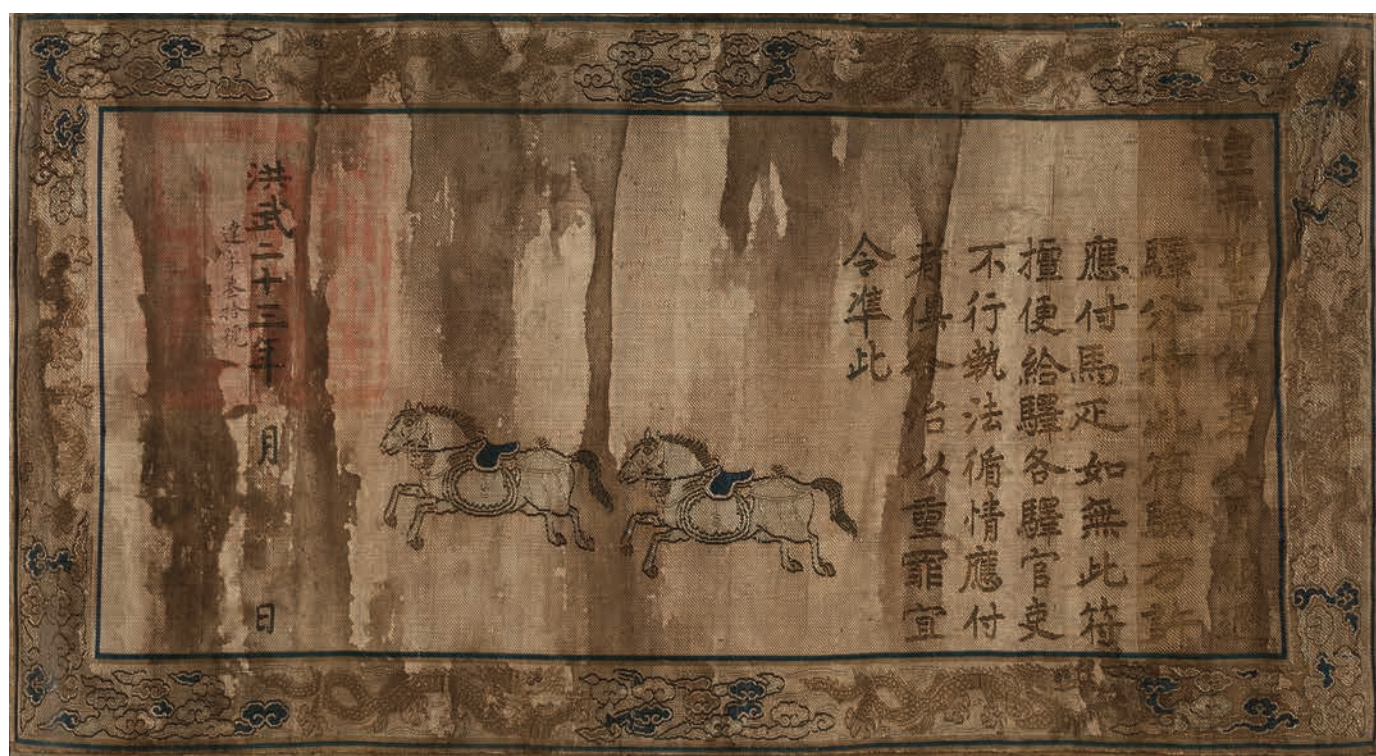 皇帝聖旨公差人員經過
驛分持此符驗方許
應付馬疋如無此符
擅便給驛各驛官吏
不行執法循情應付
者俱各治以重罪宜
令準此
洪武二十三年 月 日
達字 拾號